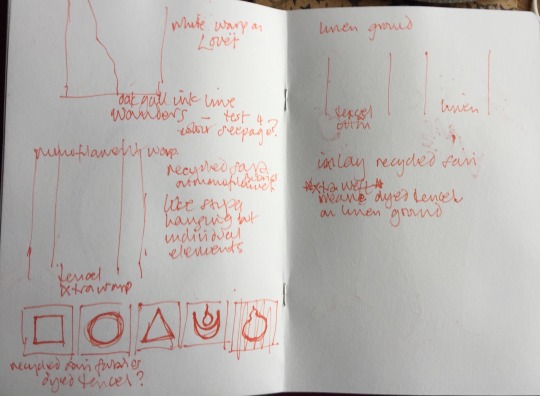 white warp on
Lovet
oak gall ink line
wanders – test 4
colour seepage?
monofilament warp
recycled sari
fabrics
on monofilament
like stripe
hanging but
individual
elements
tencel
extra warp
recycled sari fabrics or
dyed tencel?
linen ground
tencel
linen
inlay recycled sari
extra weft
means dyed tencel
on linen ground